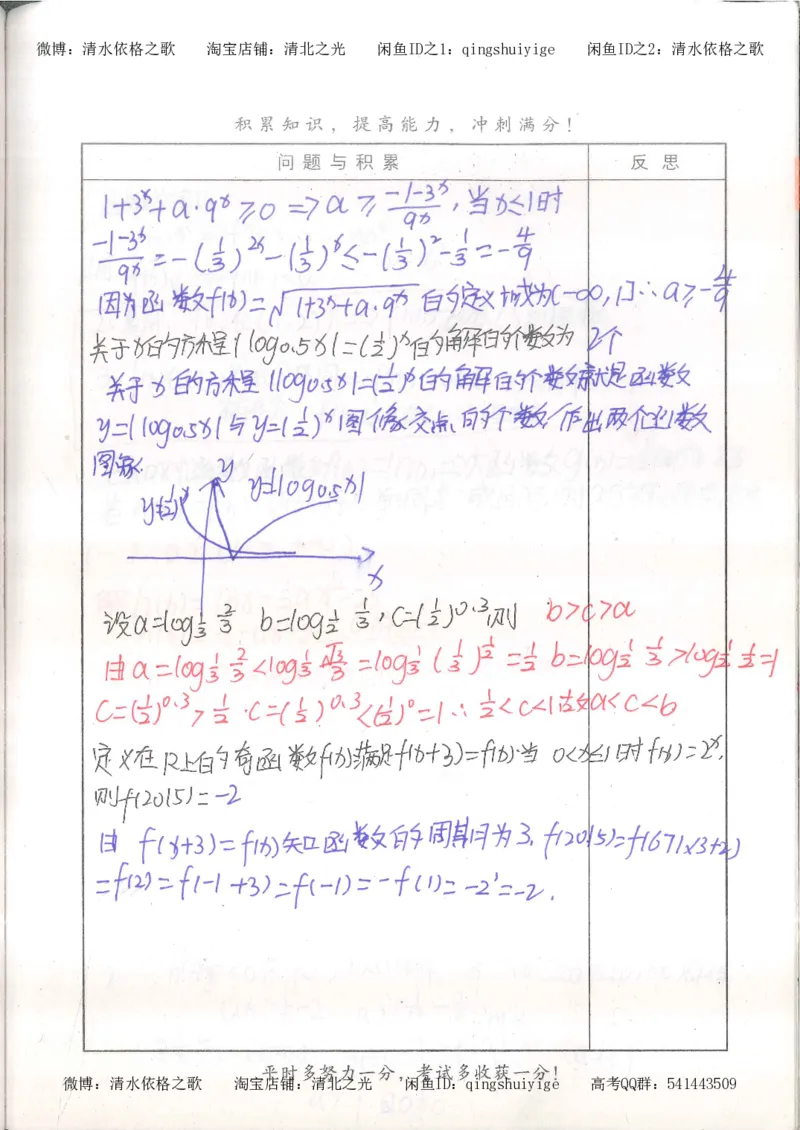 微博：清水依格之歌 淘宝店铺：清北之光 闲鱼ID之1：qingshuiyige 闲鱼ID之2：清水依格之歌
积累知识，提高能力，冲刺满分！
问题与积累 反思
1+3^x+a·9^x≥0 => a≥(-1-3^x)/9^x，当x≤1时
(-1-3^x)/9^x=-(1/3)^2x-(1/3)^x≤-(1/3)^2-1/3=-4/9
因为函数f(x)=√(1+3^x+a·9^x)的定义域为(-∞,1]∴a≥-4/9
关于x的方程|log0.5x|=(1/2)^x的解的个数为 2个
关于x的方程|log0.5x|=(1/2)^x的解的个数就是函数
y=|log0.5x|与y=(1/2)^x图像交点的个数，作出两个函数
图象
y y=|log0.5x|
y=(1/2)^x
x
设a=log1/3 2/3 b=log1/2 1/3，c=(1/2)^0.3，则 b>c>a
由a=log1/3 2/3<log1/3 √3/3=log1/3 (1/3)^1/2=1/2 b=log1/2 1/3>log1/2 1/2=1
c=(1/2)^0.3>1/2·c=(1/2)^0.3<(1/2)^0=1∴1/2<c<1故a<c<b
定义在R上的奇函数f(x)满足f(x+3)=f(x)当 0<x≤1时f(x)=2^x，
则f(2015)=-2
由f(x+3)=f(x)知函数的周期为3，f(2015)=f(671×3+2)
=f(2)=f(-1+3)=f(-1)=-f(1)=-2^1=-2．
平时多努力一分，考试多收获一分！
微博：清水依格之歌 淘宝店铺：清北之光 闲鱼ID：qingshuiyige 高考QQ群：541443509